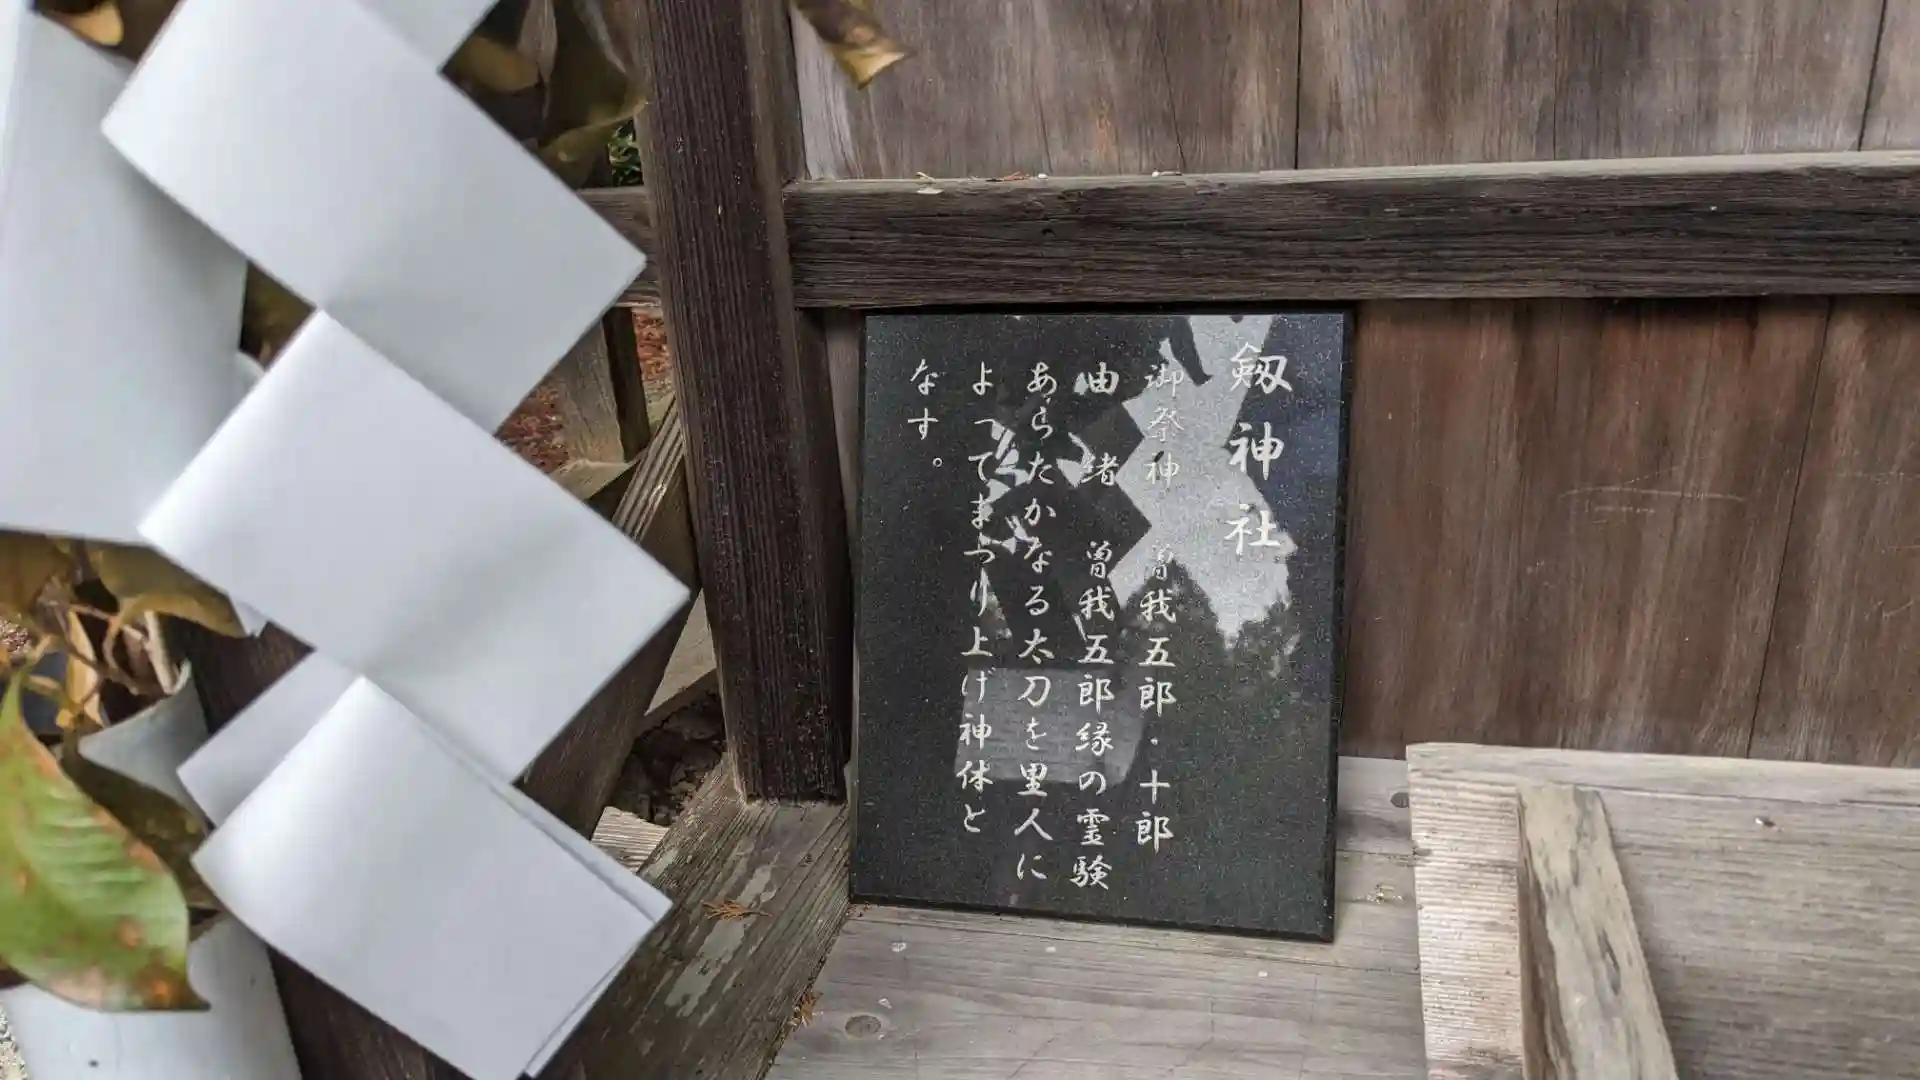 劔神社
御祭神 曽我五郎・十郎
由緒 曽我五郎縁の霊験
あらたかなる太刀を里人に
よってまつり上げ神体と
なす。